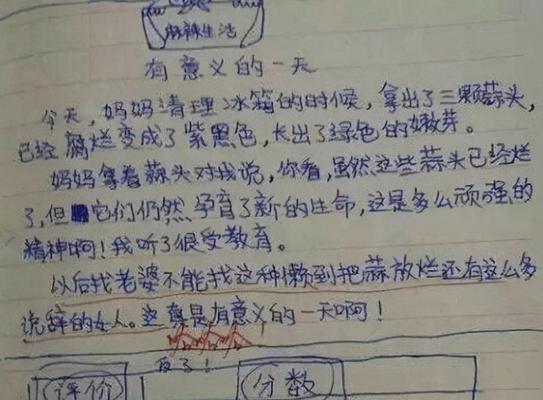 麻辣生活
有意义的一天
今天，妈妈清理冰箱的时候，拿出了三颗蒜头，
已经腐烂变成了紫黑色，长出了绿色的嫩芽。
妈妈拿着蒜头对我说，你看，虽然这些蒜头已经烂
了，但它们仍然孕育了新的生命，这是多么顽强的
精神啊！我听了很受教育。
以后找老婆不能找这种懒到把蒜放烂还有这么多
说辞的女人。这真是有意义的一天啊！
反了！
评价
分数